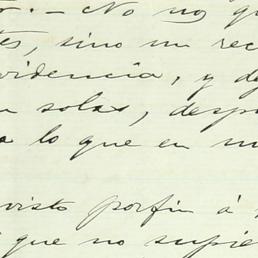 . - No nos qu
tes, sino un rec
videncia, y de
solas, despu
a lo que en m
visto porfin á
que no supie